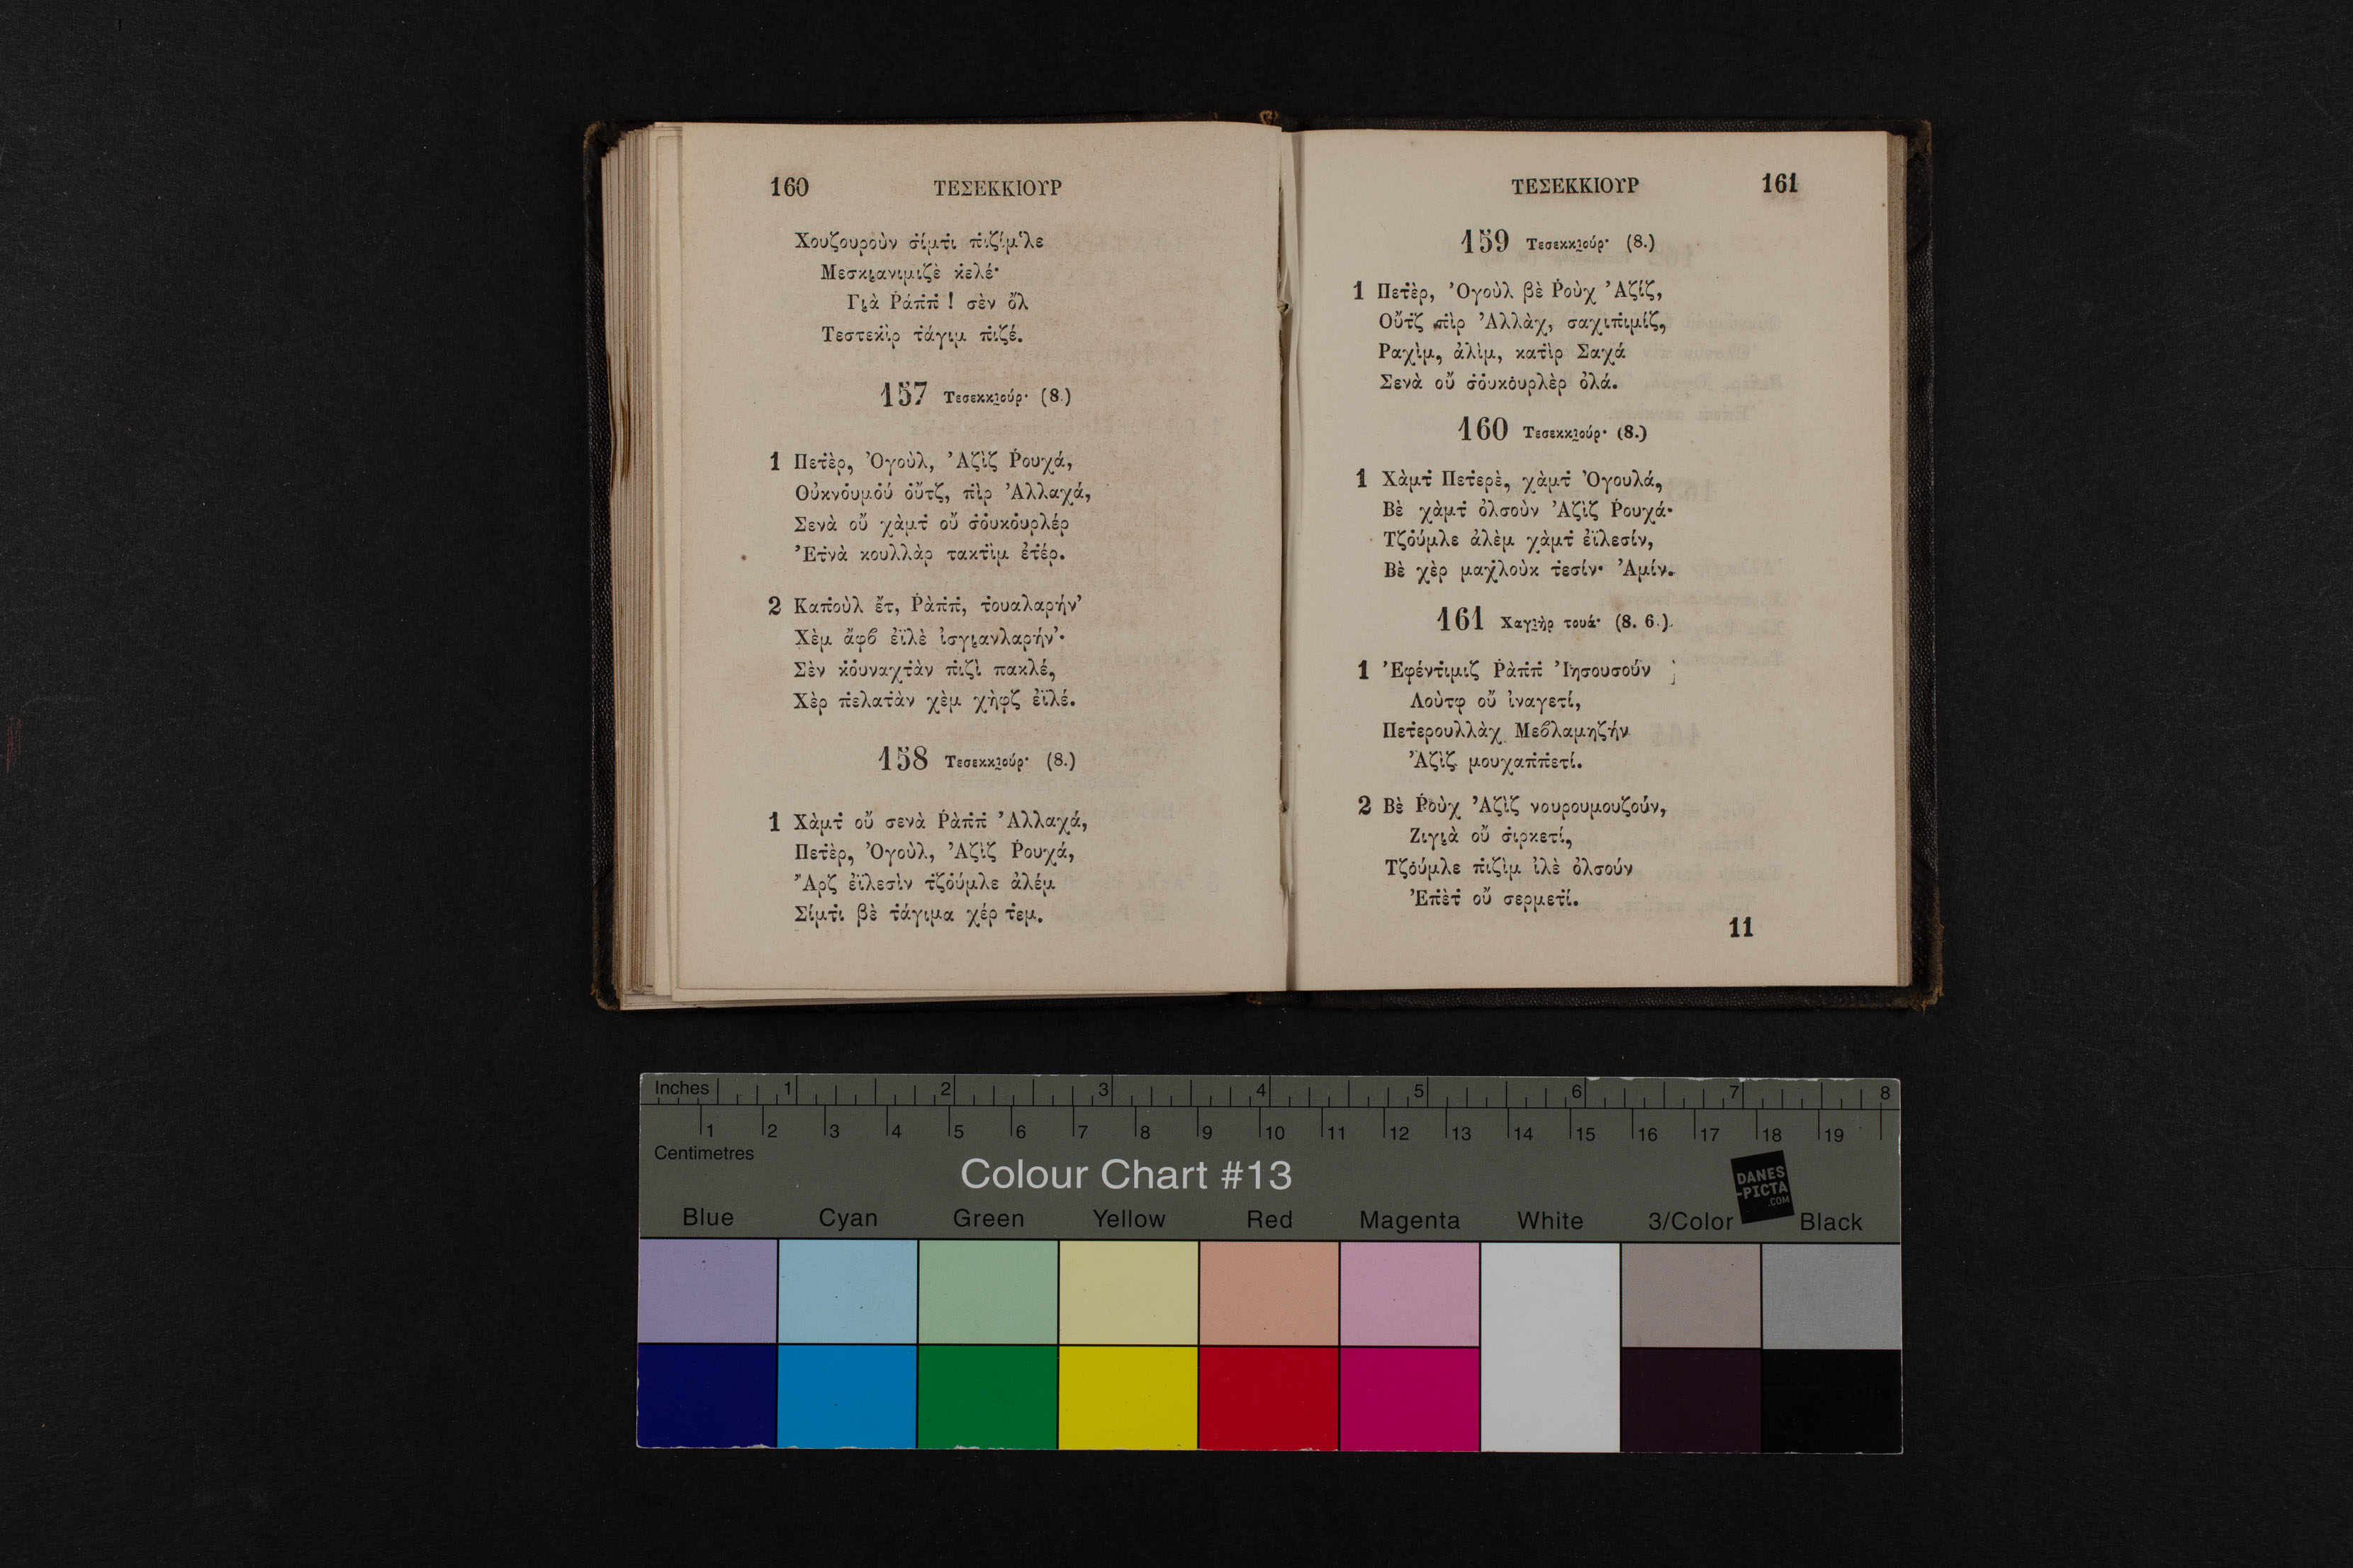 160 ΤΕΣΕΚΚΙΟΥΡ
Χουζουροὺν σ̇ίμτ̇ι π̇ιζίμ῾λε
Μεσκι̯ανιμιζὲ κ̇ελέ·
Γι̯ὰ Ῥάπ̇π̇ ! σὲν ὂλ
Τεστεκ̇ὶρ τ̇άγιμ π̇ιζέ.
157 Τεσεκκι̯ούρ· (8.)
1 Πετ̇ὲρ, Ὀγοὺλ, Ἀζὶζ Ῥουχά,
Οὐκνο̇υμο̇ύ ο̇ὔτζ, π̇ὶρ Ἀλλαχά,
Σενὰ οὔ χὰμτ̇ οὔ σ̇ο̇υκο̇υρλέρ
Ἐτ̇νὰ κουλλὰρ τακτ̇ὶμ ἐτ̇έρ.
2 Καπ̇οὺλ ἔτ, Ῥὰπ̇π̇, τ̇ουαλαρήν᾿
Χὲμ ἄφϐ ἐϊλὲ ἰσγι̯ανλαρήν᾿·
Σὲν κ̇ο̇υναχτ̇ὰν π̇ιζὶ πακλέ,
Χὲρ π̇ελατ̇ὰν χὲμ χὴφζ ἐϊλέ.
158 Τεσεκκι̯ούρ· (8.)
1 Χὰμτ̇ οὔ σενὰ Ῥὰπ̇π̇ Ἀλλαχά,
Πετ̇ὲρ, Ὀγοὺλ, Ἀζὶζ Ῥουχά,
Ἂρζ ἐϊλεσὶν τ̇ζο̇ύμλε ἀλέμ
Σίμτ̇ι βὲ τ̇άγιμα χέρ τ̇εμ.
ΤΕΣΕΚΚΙΟΥΡ 161
159 Τεσεκκι̯ούρ· (8.)
1 Πετ̇ὲρ, Ὀγοὺλ βὲ Ῥοὺχ Ἀζίζ,
Οὔτ̇ζ π̇ὶρ Ἀλλὰχ, σαχιπ̇ιμίζ,
Ραχὶμ, ἀλὶμ, κατ̇ὶρ Σαχά
Σενὰ οὔ σ̇ο̇υκο̇υρλὲρ ὀλά.
160 Τεσεκκι̯ούρ· (8.)
1 Χὰμτ̇ Πετ̇ερὲ, χὰμτ̇ Ὀγουλά,
Βὲ χὰμτ̇ ὀλσοὺν Ἀζὶζ Ῥουχά·
Τζο̇ύμλε ἀλὲμ χὰμτ̇ ἐϊλεσίν,
Βὲ χὲρ μαχλοὺκ τ̇εσίν· Ἀμίν.
161 Χαγι̯ὴρ τουά· (8. 6.)
1 Ἐφέντ̇ιμιζ Ῥὰπ̇π̇ Ἰησουσούν
Λοὺτφ οὔ ἰναγετί,
Πετ̇ερουλλὰχ Μεϐλαμηζήν
Ἀζὶζ μουχαπ̇π̇ετί.
2 Βὲ Ῥοὺχ Ἀζὶζ νουρουμουζούν,
Ζιγι̯ὰ οὔ σ̇ιρκετί,
Τζο̇ύμλε π̇ιζὶμ ἰλὲ ὀλσούν
Ἐπ̇ὲτ̇ οὔ σερμετί.
11
Inches 1 2 3 4 5 6 7 8
1 2 3 4 5 6 7 8 9 10 11 12 13 14 15 16 17 18 19
Centimetres
Colour Chart #13
DANES
-PICTA
.COM
Blue Cyan Green Yellow Red Magenta White 3/Color Black